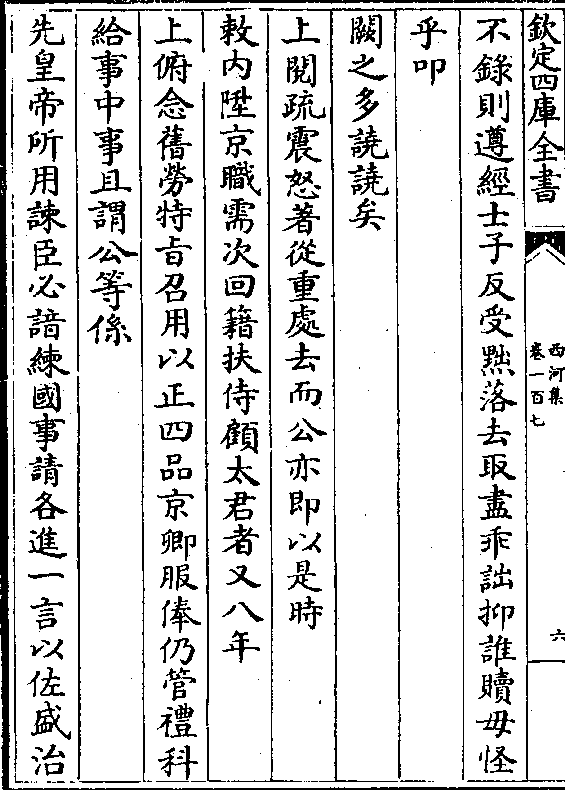 欽定四庫全書
西河集
卷一百七
六
不錄則遵經士子反受黜落去取盡乖詘抑誰贖毋怪
乎叩
闕之多譊譊矣
上閱疏震怒著從重處去而公亦即以是時
敕內陞京職需次回籍扶侍顧太君者又八年
上俯念舊勞特旨召用以正四品京卿服俸仍管禮科
給事中事且謂公等係
先皇帝所用諫臣必諳練國事請各進一言以佐盛治